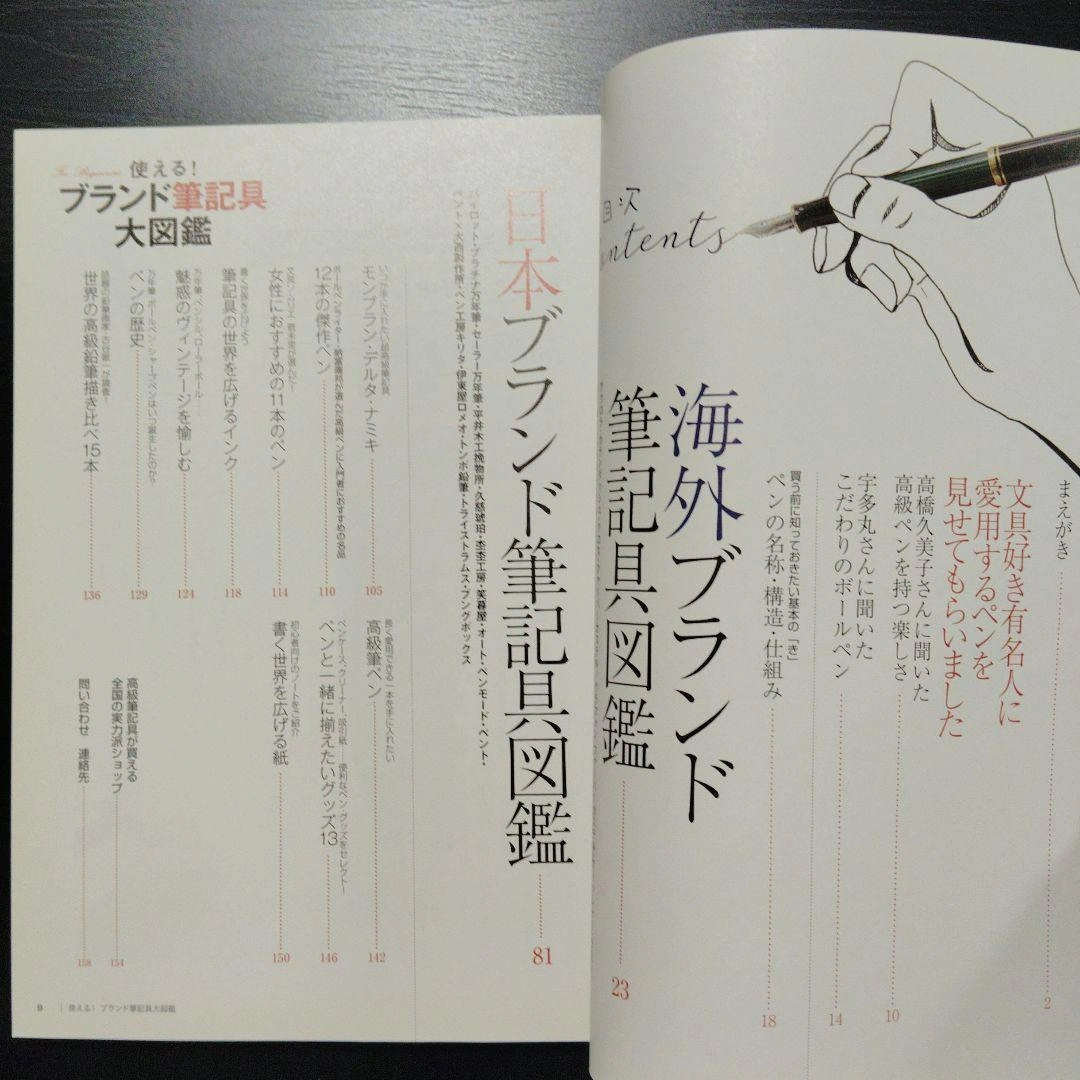 目次
まえがき
2
文具好き有名人に
愛用するペンを
見せてもらいました
高橋久美子さんに聞いた
高級ペンを持つ楽しさ
10
宇多丸さんに聞いた
こだわりのボールペン
14
買う前に知っておきたい基本の「き」
ペンの名称・構造・仕組み
18
海外ブランド
筆記具図鑑
23
日本ブランド筆記具図鑑
81
パイロット・プラチナ万年筆・セーラー万年筆・平井木工挽物所・久慈琥珀・杢杢工房・笑暮屋・オート・ペンモード・ベント・
ペント×大西製作所・ペン工房キリタ・伊東屋ロメオ・トンボ鉛筆・トライストラムス・ブングボックス
いつか手に入れたい超高級筆記具
モンブラン・デルタ・ナミキ
105
12本の傑作ペン
110
女性におすすめの11本のペン
114
書く世界を広げよう
筆記具の世界を広げるインク
118
万年筆、ペンシル、ローラーボール……
魅惑のヴィンテージを愉しむ
124
万年筆、ボールペン、シャープペンはいつ誕生したのか?
ペンの歴史
129
世界の高級鉛筆描き比べ15本
136
長く愛用できる一本を手に入れたい
高級筆ペン
142
ペンケース、クリーナー、吸引紙 便利なペン・グッズをセレクト!
ペンと一緒に揃えたいグッズ13
146
初心者向けのノートをご紹介
書く世界を広げる紙
150
高級筆記具が買える
全国の実力派ショップ
154
問い合わせ 連絡先
158
使える!
ブランド筆記具
大図鑑
9 | 使える! ブランド筆記具大図鑑